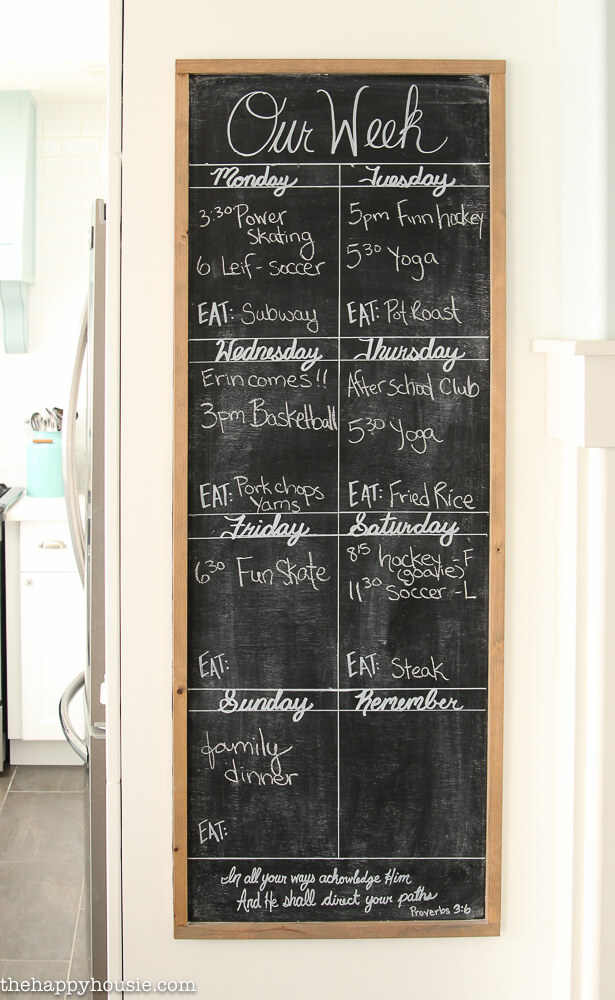 Our Week
Monday
3:30 Power
Skating
6 Leif - soccer
EAT: Subway
Tuesday
5pm Finn hockey
5³⁰ Yoga
EAT: Pot Roast
Wednesday
Erin comes!!
3pm Basketball
EAT: Pork chops
Yams
Thursday
After school Club
5³⁰ Yoga
EAT: Fried Rice
Friday
6³⁰ Fun Skate
EAT:
Saturday
8¹⁵ hockey - F
(goalie)
11³⁰ Soccer - L
EAT: Steak
Sunday
family
dinner
EAT:
Remember
In all your ways acknowledge Him
And He shall direct your paths
Proverbs 3:6
thehappyhousie.com